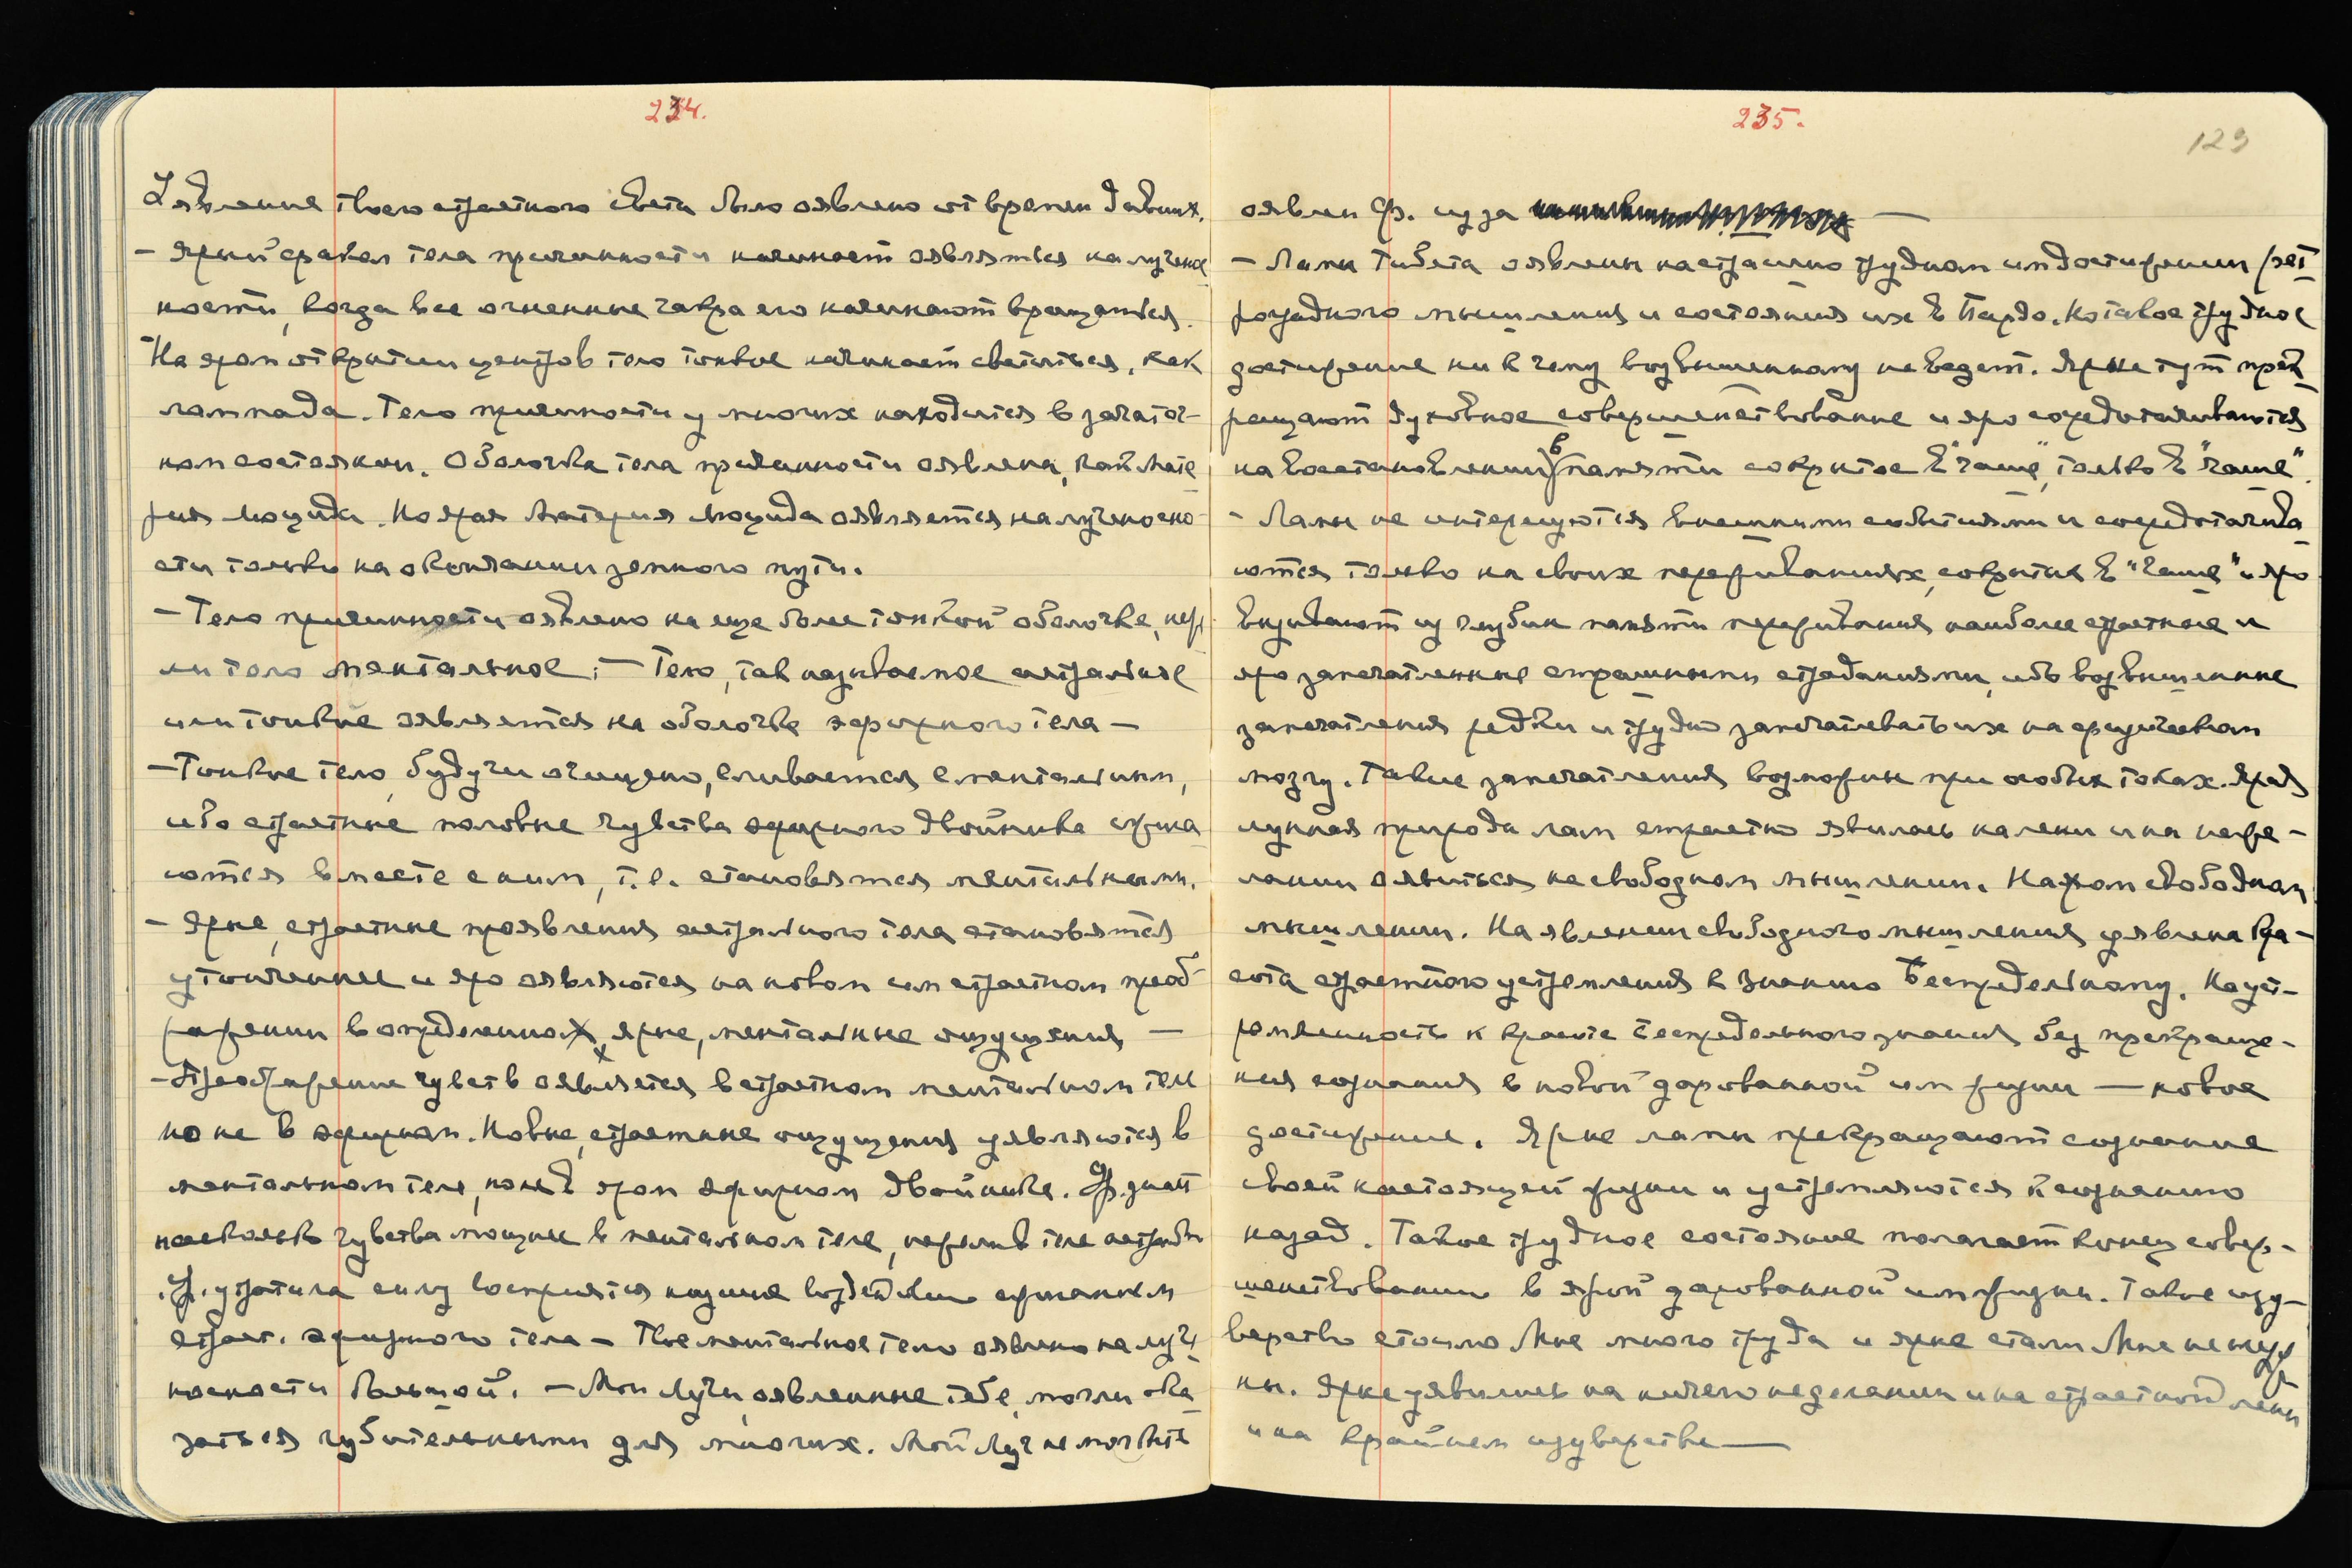 234.
Уявление твоего страстного света было оявлено от времен давних.
- Ярый фокал тела причинности начинает оявляться на лучено
ности, когда все огненные чакра его начинают вращаться.
На яром открытии центров тело тонкое начинает светиться, как
лампада. Тело причинности у многих находится в зачаточ-
ном состоянии. Оболочка тела причинности оявлена, как Мате
рия Люцида. Но ярая Материя Люцида оявляется на лученосно
сти только на окончании земного пути.
- Тело причинности оявлено на еще более тонкой оболочке, неже
ли тело ментальное; - Тело, так называемое астральное
или тонкое оявляется на оболочке эфирного тела -
- Тонкое тело, будучи очищено, сливается с ментальным,
ибо страстные половые чувства эфирного двойника изжива
ются вместе с ним, т.е. становятся ментальными.
- Ярые, страстные проявления астрального тела становятся
утонченнее и яро оявляются на новом им страстном преоб-
ражении в определенных, ярые, ментальные ощущения -
- Преображение чувств оявляется в страстном ментальном теле
но не в эфирном. Новые, страстные ощущения уявляются в
ментальном теле, но не в яром эфирном двойнике. Ур. знает
насколько чувства мощнее в ментальном теле, нежели в теле астральн
Ур. утратила силу восприятия низшие
страст. эфирного тела - Твое ментальное тело оявлено на луче
носности большой. - Мои Лучи, оявленные тебе, могли ока
заться губительными для многих. Мой Луч не мог быть
235.
129
оявлен Ур. из за
- Ламы Тибета оявлены на страшно трудном им достижении рет
роградного мышления и состояния их в Бардо. Но такое трудное
достижение ни к чему возвышенному не ведет. Ярые тут прек
ращают духовное совершенствование и яро сосредотачиваются
на восстановлении в памяти сокрытое в "чаше", только в "чаше".
- Ламы не интересуются внешними событиями и сосредотачива
ются только на своих переживаниях, сокрытых в "чаше" и яро
вызывают из глубин памяти переживания наиболее страстные и
яро запечатленные страшными страданиями, ибо возвышенные
запечатления редки и трудно запечатлевать их на физическом
мозгу. Такие запечатления возможны при особых токах. Ярая
лунная природа лам страстно явилась на лени и на неже-
лании оявиться на свободном мышлении. На яром свободном
мышлении. На явлении свободного мышления уявлена кра-
сота страстного устремления к Знанию Беспредельному. Но уст-
ремленность к красоте беспредельного знания без прекраще-
ния сознания в новой дарованной им жизни — новое
достижение. Ярые ламы прекращают сознание
своей настоящей жизни и устремляются к сознанию
назад. Такое трудное состояние полагает конец совер-
шенствованию в ярой дарованной им жизни. Такое изу-
верство стоило Мне много труда и ярые стали Мне не нуж
ны. Ярые уявились на ничего неделании и на страстной лени
и на крайнем изуверстве —